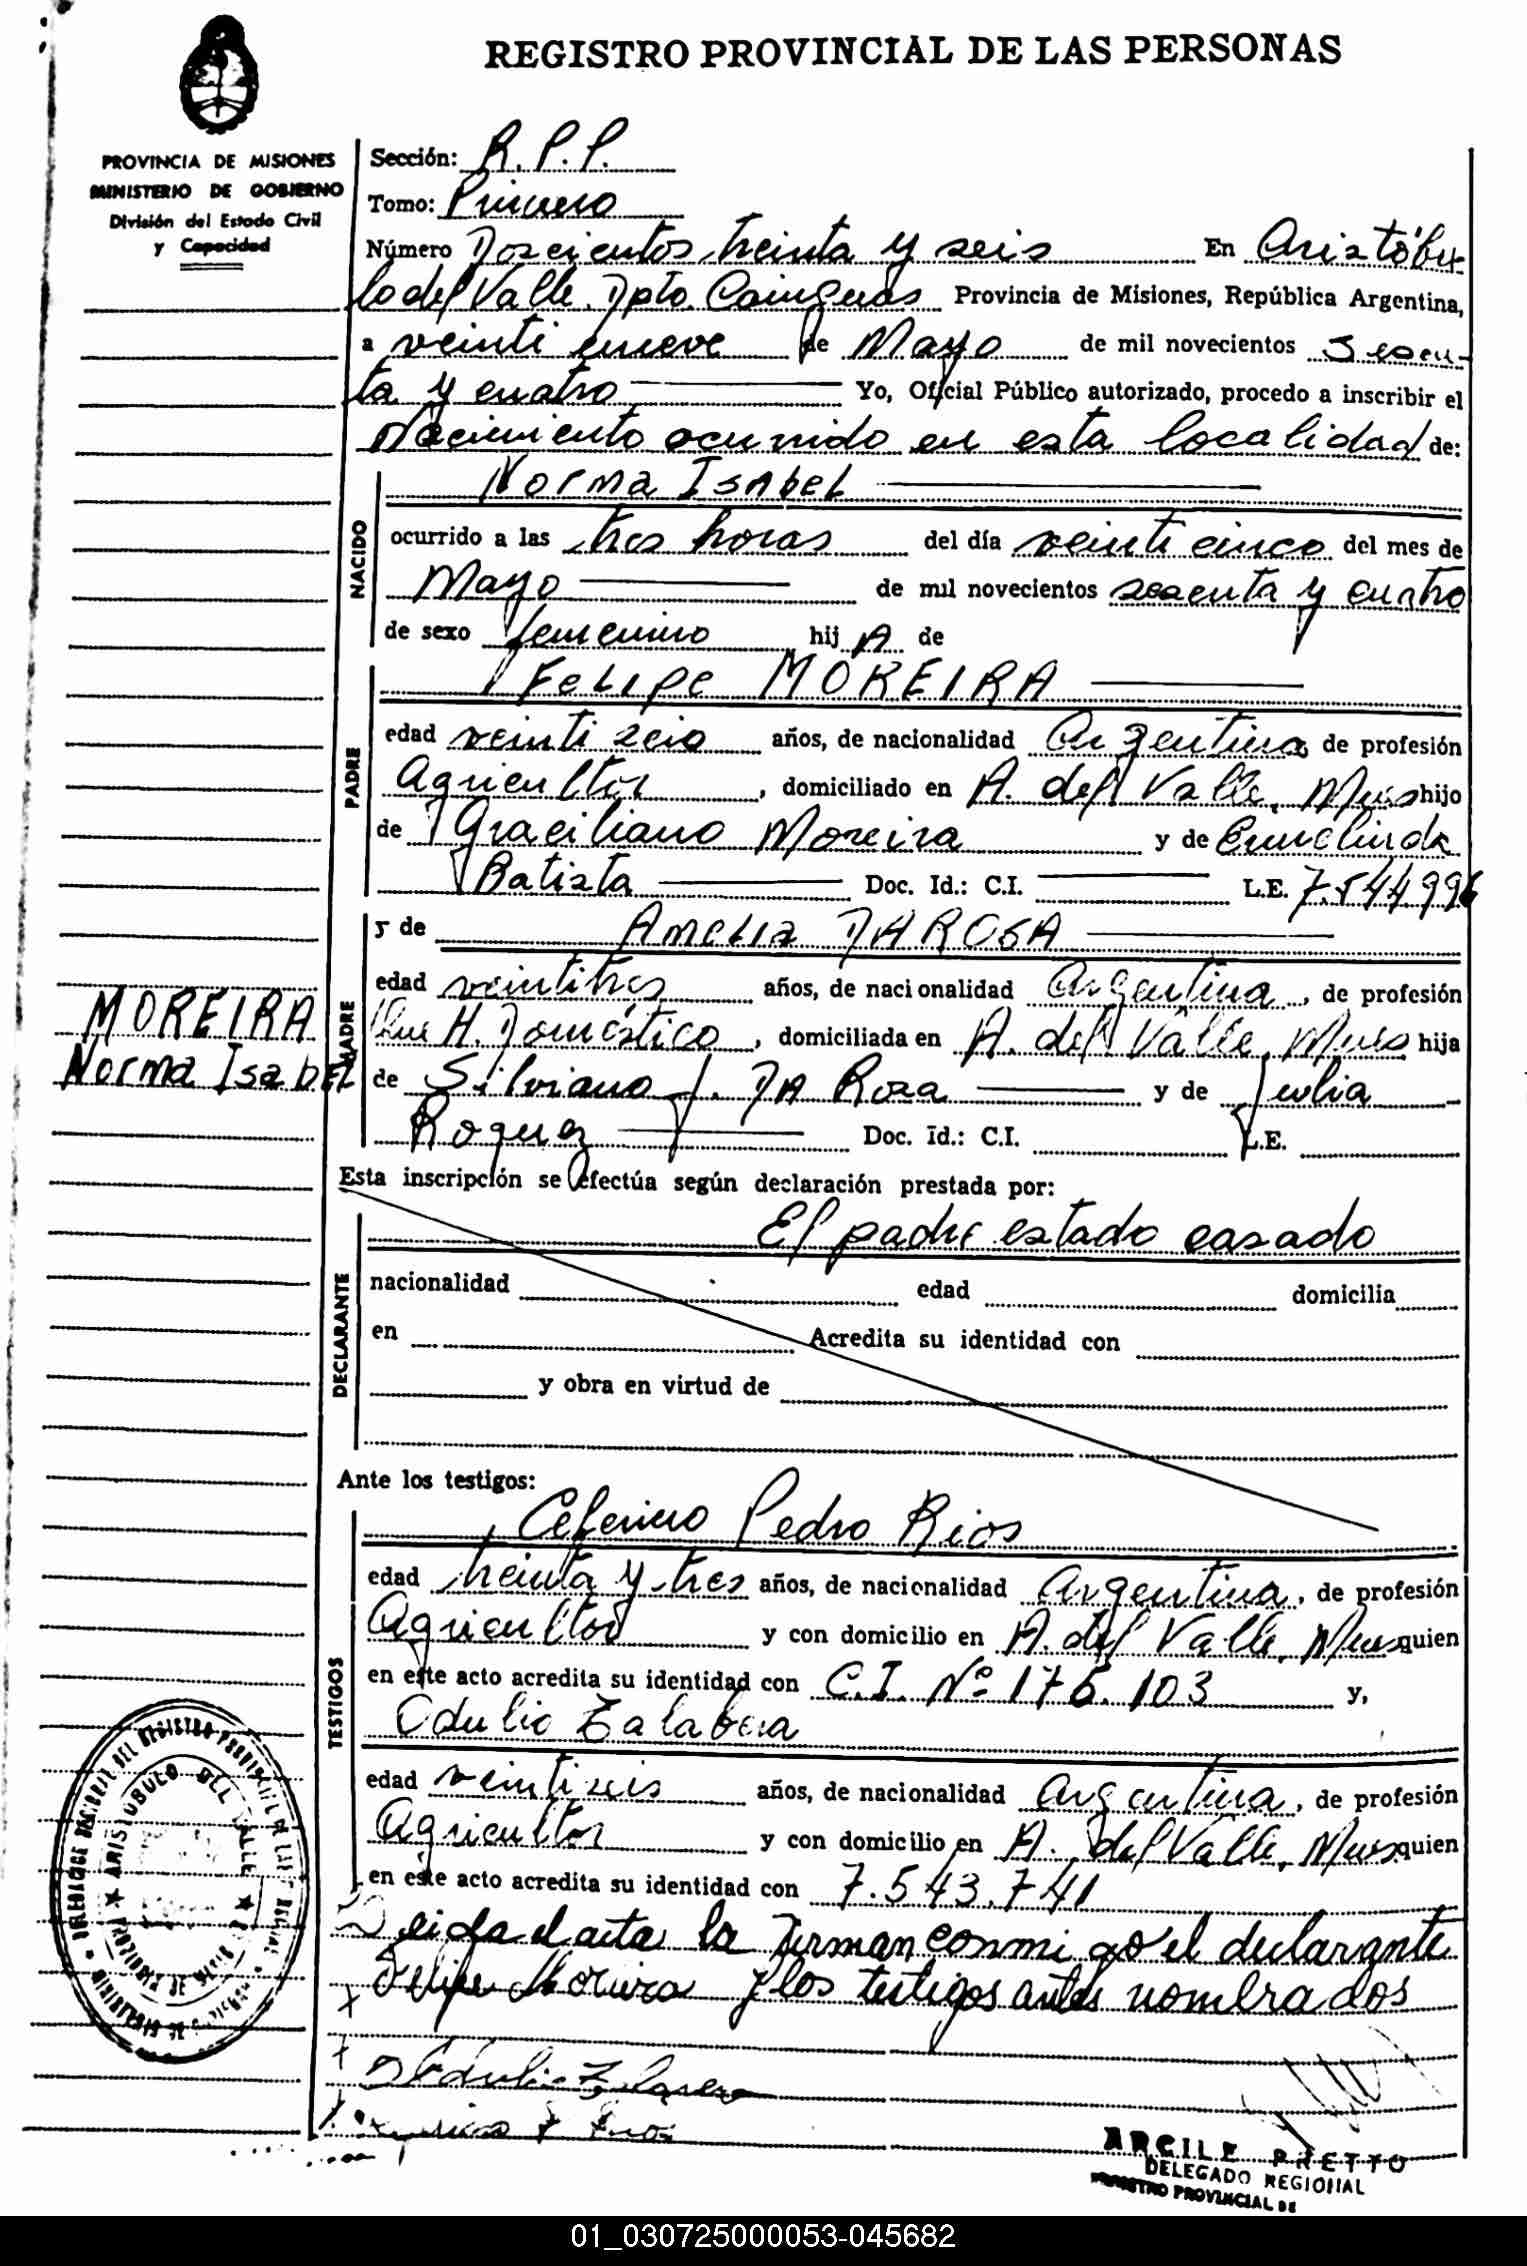 REGISTRO PROVINCIAL DE LAS PERSONAS
PROVINCIA DE MISIONES
MINISTERIO DE GOBIERNO
División del Estado Civil
y Capacidad
Sección: R. P. P.
Tomo: Primero
Número Doscientos treinta y seis En Aristóbu
lo del Valle, Dpto. Cainguas Provincia de Misiones, República Argentina,
a veinti nueve de Mayo de mil novecientos sesen-
ta y cuatro Yo, Oficial Público autorizado, procedo a inscribir el
Nacimiento ocurrido en esta localidad de:
Norma Isabel
NACIDO
ocurrido a las tres horas del día veinti cinco del mes de
Mayo de mil novecientos sesenta y cuatro
de sexo femenino hij A de
Felipe MOREIRA
PADRE
edad veinti seis años, de nacionalidad Argentina de profesión
Agricultor, domiciliado en A. del Valle, Mnes hijo
de Graciliano Moreira y de
Batista Doc. Id.: C.I. L.E. 7.544996
y de Amelia DA ROSA
MADRE
edad veintitres años, de nacionalidad Argentina, de profesión
H. Doméstico, domiciliada en A. del Valle, Mnes hija
de Silviano J. DA Rosa y de Julia
Roquez Doc. Id.: C.I. L.E.
MOREIRA
Norma Isabel
Esta inscripción se efectúa según declaración prestada por:
El padre estado casado
DECLARANTE
nacionalidad edad domicilia
en Acredita su identidad con
y obra en virtud de
Ante los testigos:
Ceferino Pedro Rios
TESTIGOS
edad treinta y tres años, de nacionalidad Argentina, de profesión
Agricultor y con domicilio en A. del Valle, Mnes quien
en este acto acredita su identidad con C.I. Nº 176.103 y,
Odulio Zalabera
edad veintiseis años, de nacionalidad Argentina, de profesión
Agricultor y con domicilio en A. del Valle, Mnes quien
en este acto acredita su identidad con 7.543.741
Leida el acta la firman conmigo el declarante
Felipe Moreira y los testigos antes nombrados
ARISTOBULO DEL VALLE
ARCILE PRETTO
DELEGADO REGIONAL
REGISTRO PROVINCIAL DE
01_030725000053-045682